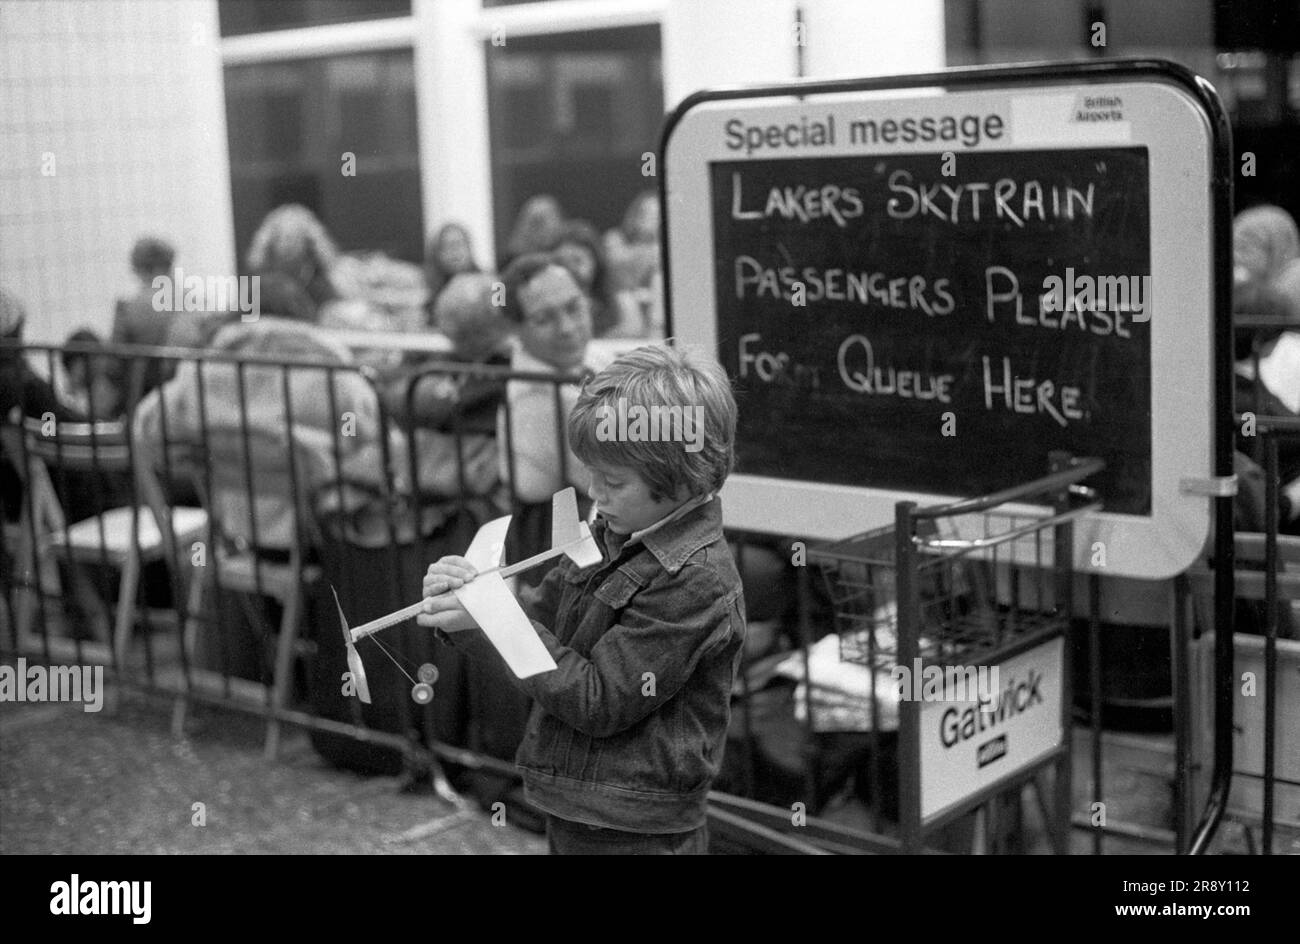 Special message
British
Airports
LAKERS "SKYTRAIN"
PASSENGERS PLEASE
FORM QUEUE HERE.
Gatwick
alamy
Image ID: 2R8Y112
www.alamy.com